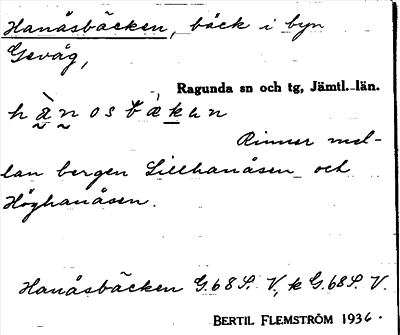 Hanåsbäcken, bäck i byn
Gevåg,
Ragunda sn och tg, Jämtl. län.
Rinner mel-
lan bergen Lillhanåsen och
Höghanåsen.
Hanåsbäcken G.68 S. V, k G.68 S. V.
BERTIL FLEMSTRÖM 1936.